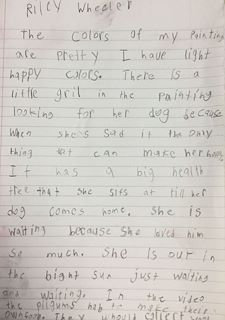 Riley Wheeler
The colors of my Painting
are pretty I have light
happy colors. There is a
little gril in the painting
looking for her dog because
when she's sad it the only
thing tat can make her happy
It has a big health
tree that she sits at till her
dog comes home. She is
waiting because she loved him
so much. She is our in
the bight sun just waiting
and waiting. In the video
the piligums had to make their
own The y whould collect